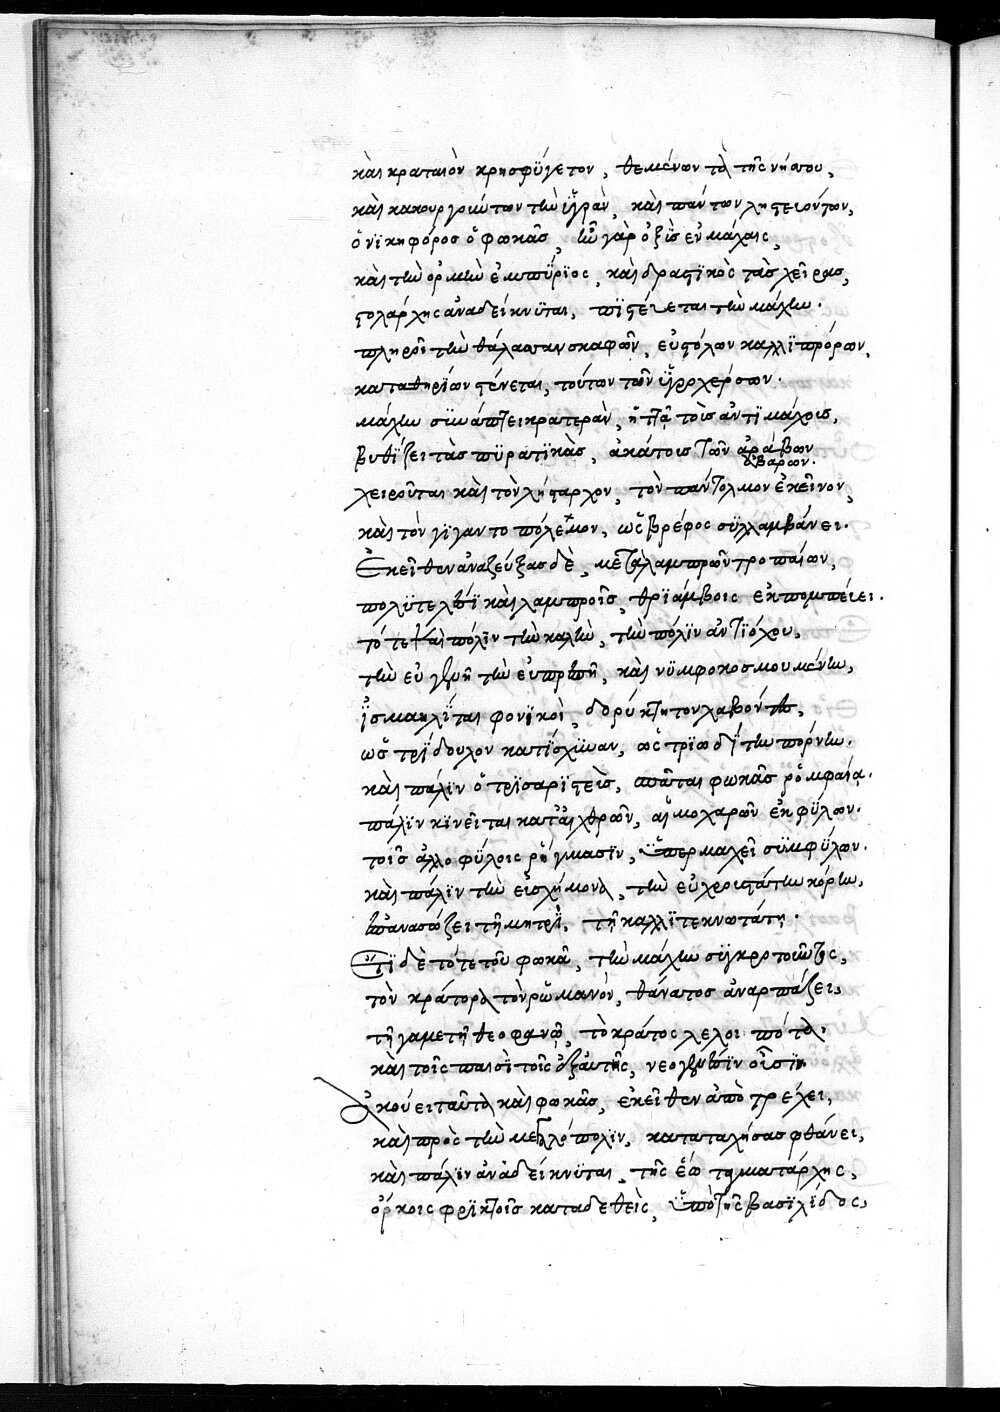 καὶ κραταιὸν κρησφύγετον, θεμένων τὸ τῆς νήσου,
καὶ κακουργούντων τὴν ὑγρὰν, καὶ πάντων ληστευόντων,
ὁ νικηφόρος ὁ φωκᾶς, ἦν γὰρ ὀξὺς ἐν μάχαις,
καὶ τὴν ὁρμὴν ἐμπύριος, καὶ δραστικὸς τὰς χεῖρας,
στολάρχης ἀναδείκνυται, πιστεύεται τὴν μάχην.
πληροῖ τὴν θάλασσαν σκαφῶν, εὐστόλων καλλιπρόρων,
καταθηρίων γένεται, τούτων τῶν ὑγροχέρσων.
μάχην συνάπτει κρατερὰν, ἡττᾶ τοὺς ἀντιμάχους,
βυθίζει τὰς πυρατικὰς, ἀκάτους τῶν ἀράβων
βαρβάρων.
χειροῦται καὶ τὸν λήσταρχον, τὸν παντόλμον ἐκεῖνον,
καὶ τὸν γίγαντο πόλεμον, ὡς βρέφος συλλαμβάνει.
Ἐκεῖθεν ἀναζεύξας δὲ, μετὰ λαμπρῶν τροπαίων,
πολυτελέσι καὶ λαμπροῖς, θριάμβοις ἐκπομπεύει.
τότε καὶ πόλιν τὴν καλὴν, τὴν πόλιν ἀντιόχου,
τὴν εὐγενῆ τὴν εὐπρεπῆ, καὶ νυμφοκοσμουμένην,
ἰσμαηλῖται φονικοὶ, δορύκτητον λαβόντες,
ὡς τρίδουλον κατίσχυναν, ὡς τριωδίτην πόρνην.
καὶ πάλιν ὁ τρισαριστεὺς, σπᾶται φωκᾶς ῥομφαίαν.
πάλιν κινεῖται κατ' ἐχθρῶν, αἱμοχαρῶν ἐκφύλων.
τοῖς ἀλλοφύλοις ῥήγμασιν, ὑπερμαχεῖ συμφύλων.
καὶ πάλιν τὴν εὐσχήμονα, τὴν εὐχαριστάτην κόρην,
ἐπανασώζει τῇ μητρὶ, τῇ καλλιτεκνωτάτῃ.
Ἔτι δὲ τότε τοῦ φωκᾶ, τὴν μάχην συγκροτοῦντος,
τὸν κράτορα τὸν ῥωμανὸν, θάνατος ἀναρπάζει,
τῇ γαμετῇ θεοφανῷ, τὸ κράτος λελοιπότα.
καὶ τοῖς παισὶ τοῖς ἐξαυτῆς, νεογενέσιν οὖσιν.
Ἀκούει ταῦτα καὶ φωκᾶς, ἐκεῖθεν ἀποτρέχει,
καὶ πρὸς τὴν μεγαλόπολιν, καταταχήσας φθάνει,
καὶ πάλιν ἀναδείκνυται, τῆς ἕω ταγματάρχης,
ὅρκοις φρικτοῖς καταδεθεὶς, ὑπὸ τῆς βασιλίδος,